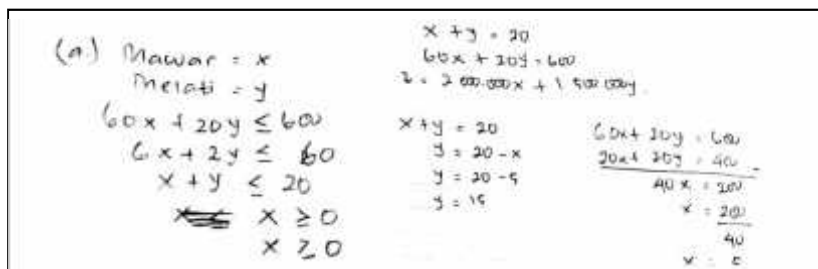 (a.) Mawar = x
Melati = y
60x + 20y ≤ 600
6x + 2y ≤ 60
x + y ≤ 20
x ≥ 0
x ≥ 0
x + y = 20
60x + 20y = 600
z = 2 000.000x + 1 500 000y.
x + y = 20
y = 20 - x
y = 20 - 5
y = 15
60x + 20y = 600
20x + 20y = 400 -
40x = 200
x = 200
40
x = 5